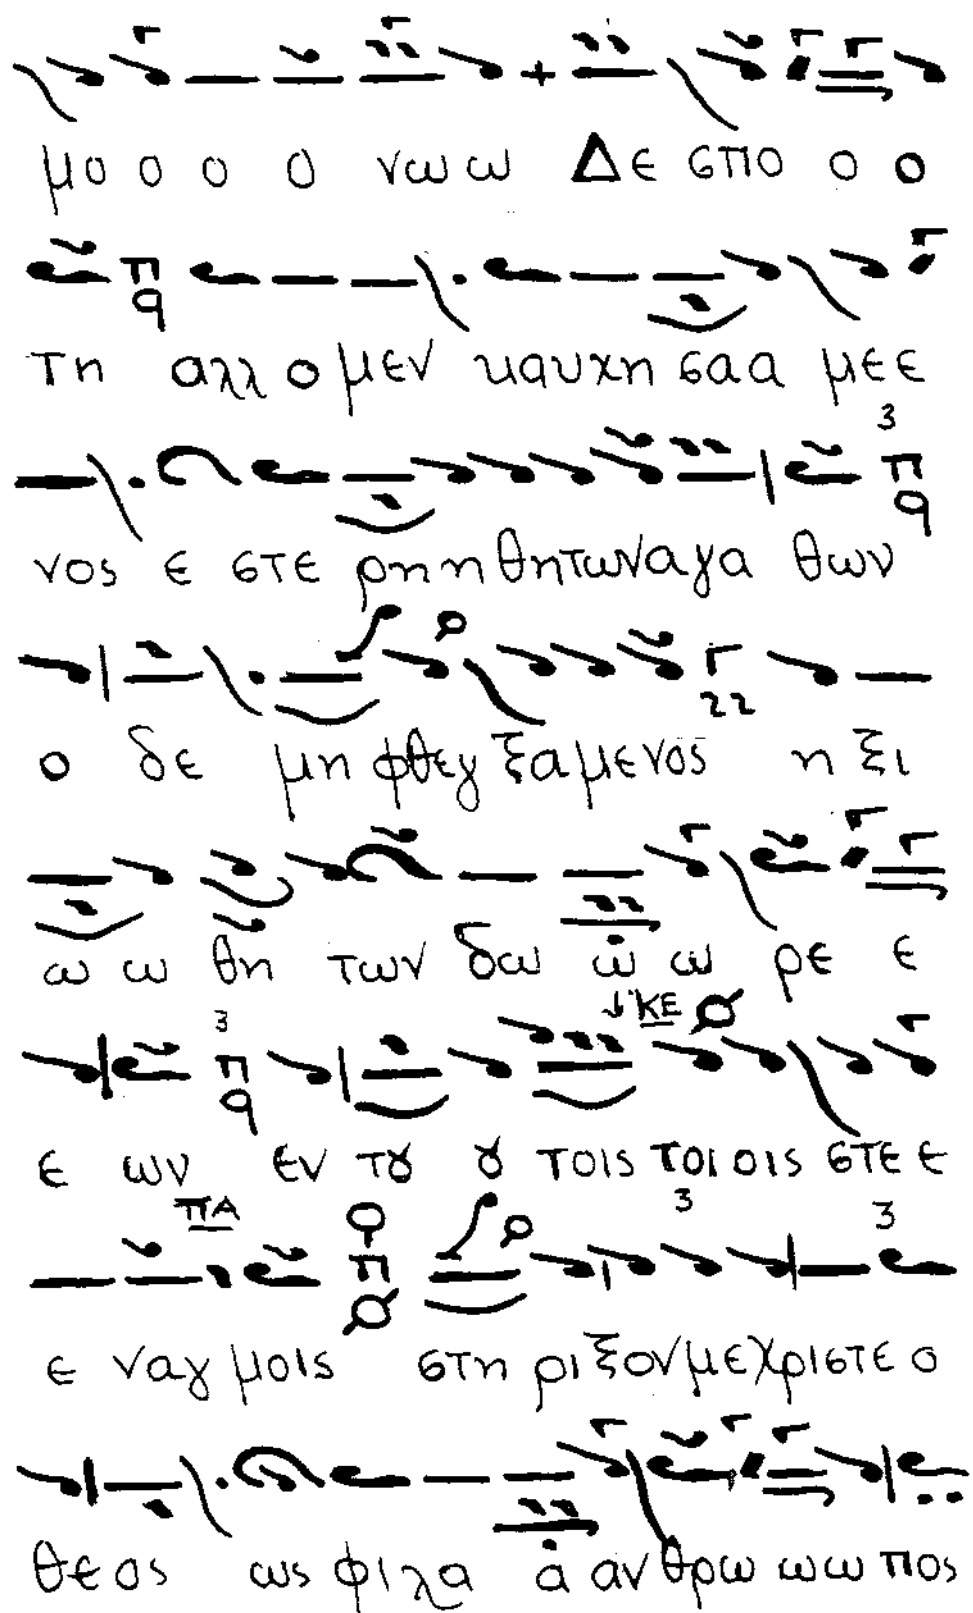 μο ο ο ο νω ω Δε σπο ο ο
τη αλλ ο μεν καυχη σαα με ε
νος ε στε ρη η θητωναγα θων
ο δε μη φθεγ ξα μενος η ξι
ω ω θη των δω ω ω ρε ε
ε ων εν του ου τοις τοι οις στε ε
ε ναγ μοις στη ρι ξον με χρι στε ο
θε ος ως φι λα α αν θρω ω ω πος